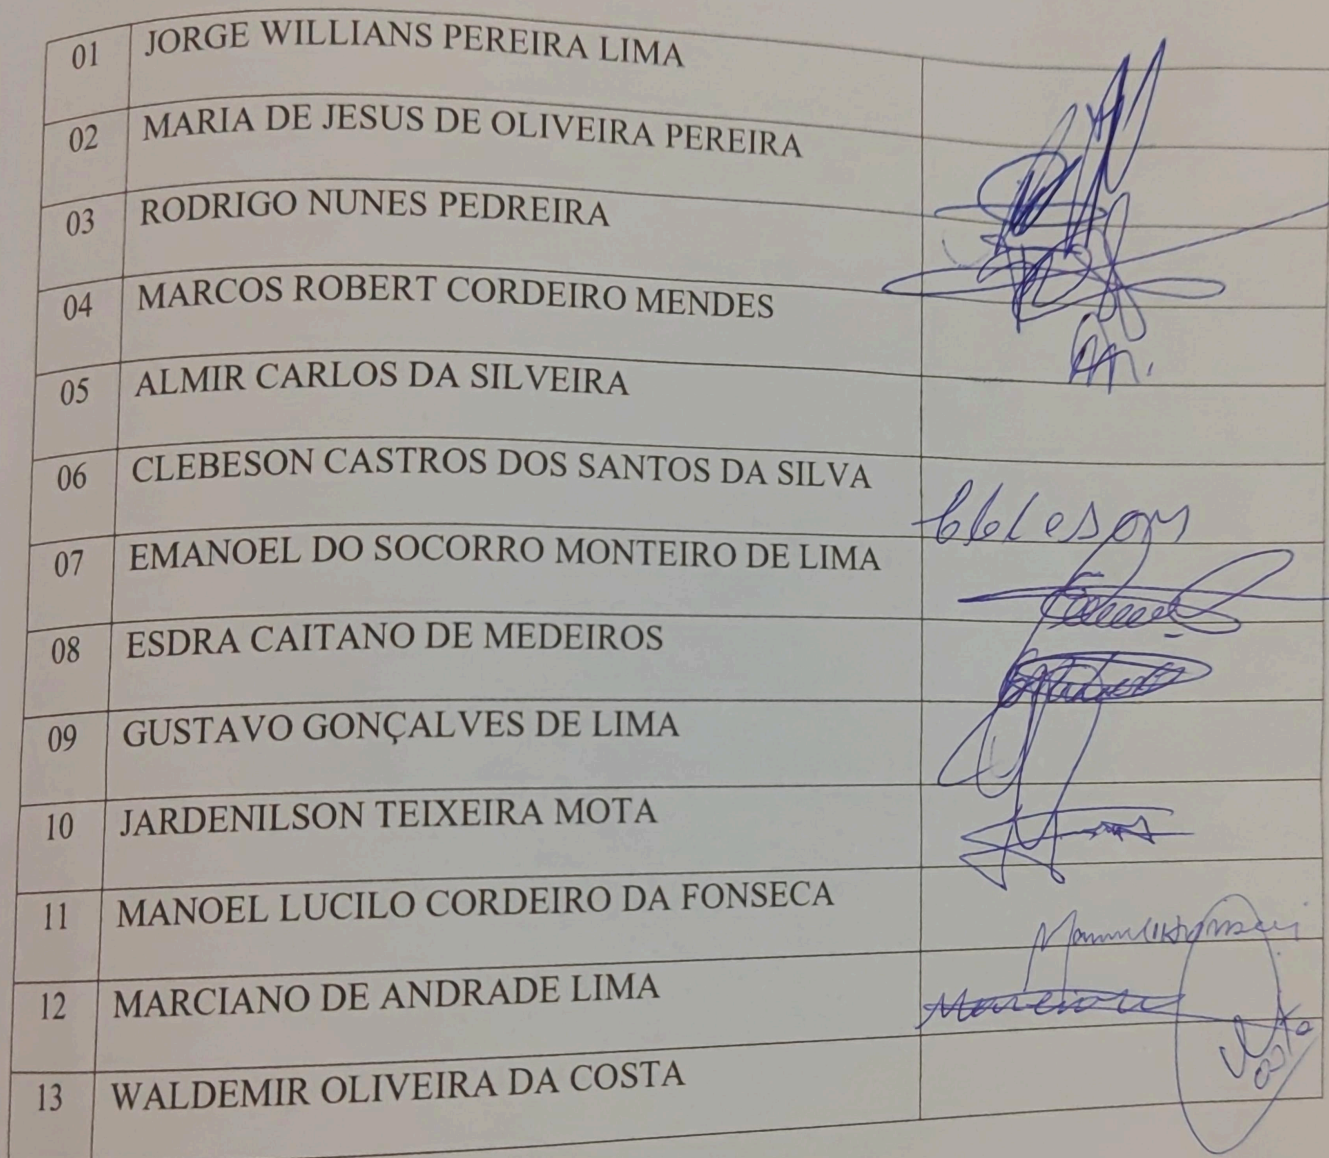 01 JORGE WILLIANS PEREIRA LIMA
02 MARIA DE JESUS DE OLIVEIRA PEREIRA
03 RODRIGO NUNES PEDREIRA
04 MARCOS ROBERT CORDEIRO MENDES
05 ALMIR CARLOS DA SILVEIRA
06 CLEBESON CASTROS DOS SANTOS DA SILVA
07 EMANOEL DO SOCORRO MONTEIRO DE LIMA
08 ESDRA CAITANO DE MEDEIROS
09 GUSTAVO GONÇALVES DE LIMA
10 JARDENILSON TEIXEIRA MOTA
11 MANOEL LUCILO CORDEIRO DA FONSECA
12 MARCIANO DE ANDRADE LIMA
13 WALDEMIR OLIVEIRA DA COSTA